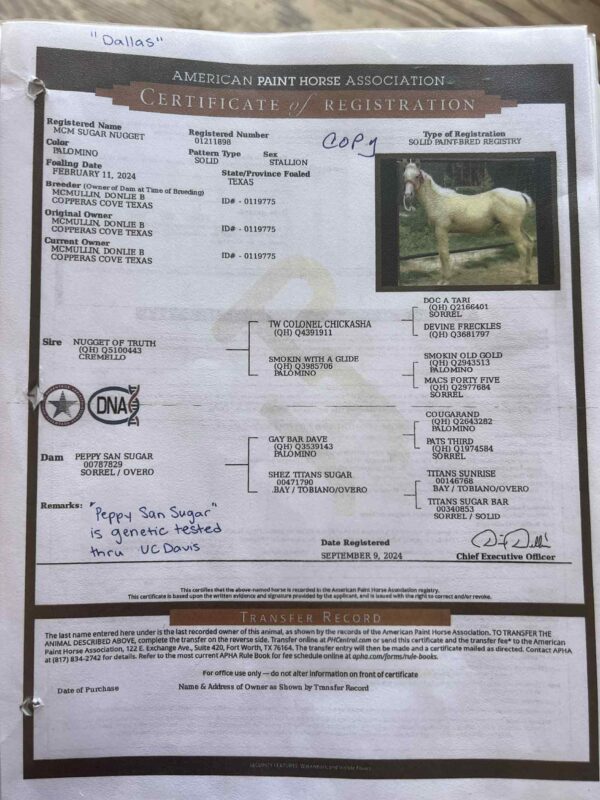 "Dallas"
AMERICAN PAINT HORSE ASSOCIATION
CERTIFICATE of REGISTRATION
COPY
Registered Name
MCM SUGAR NUGGET
Registered Number
01211898
Type of Registration
SOLID PAINT-BRED REGISTRY
Color
PALOMINO
Pattern Type
SOLID
Sex
STALLION
Foaling Date
FEBRUARY 11, 2024
State/Province Foaled
TEXAS
Breeder (Owner of Dam at Time of Breeding)
MCMULLIN, DONLIE B
COPPERAS COVE TEXAS
ID# - 0119775
Original Owner
MCMULLIN, DONLIE B
COPPERAS COVE TEXAS
ID# - 0119775
Current Owner
MCMULLIN, DONLIE B
COPPERAS COVE TEXAS
ID# - 0119775
Sire
NUGGET OF TRUTH
(QH) Q5100443
CREMELLO
TW COLONEL CHICKASHA
(QH) Q4391911
DOC A TARI
(QH) Q2166401
SORREL
DEVINE FRECKLES
(QH) Q3681797
SMOKIN WITH A GLIDE
(QH) Q3985706
PALOMINO
SMOKIN OLD GOLD
(QH) Q2943513
PALOMINO
MACS FORTY FIVE
(QH) Q2977684
SORREL
DNA
Dam
PEPPY SAN SUGAR
00787829
SORREL / OVERO
GAY BAR DAVE
(QH) Q3539143
PALOMINO
COUGARAND
(QH) Q2643282
PALOMINO
PATS THIRD
(QH) Q1974584
SORREL
SHEZ TITANS SUGAR
00471790
BAY / TOBIANO/OVERO
TITANS SUNRISE
00146768
BAY / TOBIANO/OVERO
TITANS SUGAR BAR
00340853
SORREL / SOLID
Remarks:
"Peppy San Sugar"
is genetic tested
thru UC Davis
Date Registered
SEPTEMBER 9, 2024
Chief Executive Officer
This certifies that the above-named horse is recorded in the American Paint Horse Association registry.
This certificate is based upon the written evidence and signature provided by the applicant, and is issued with the right to correct and/or revoke.
TRANSFER RECORD
The last name entered here under is the last recorded owner of this animal, as shown by the records of the American Paint Horse Association. TO TRANSFER THE
ANIMAL DESCRIBED ABOVE, complete the transfer on the reverse side. Transfer online at PHCentral.com or send this certificate and the transfer fee* to the American
Paint Horse Association, 122 E. Exchange Ave., Suite 420, Fort Worth, TX 76164. The transfer entry will then be made and a certificate mailed as directed. Contact APHA
at (817) 834-2742 for details. Refer to the most current APHA Rule Book for fee schedule online at apha.com/forms/rule-books.
For office use only — do not alter information on front of certificate
Date of Purchase
Name & Address of Owner as Shown by Transfer Record